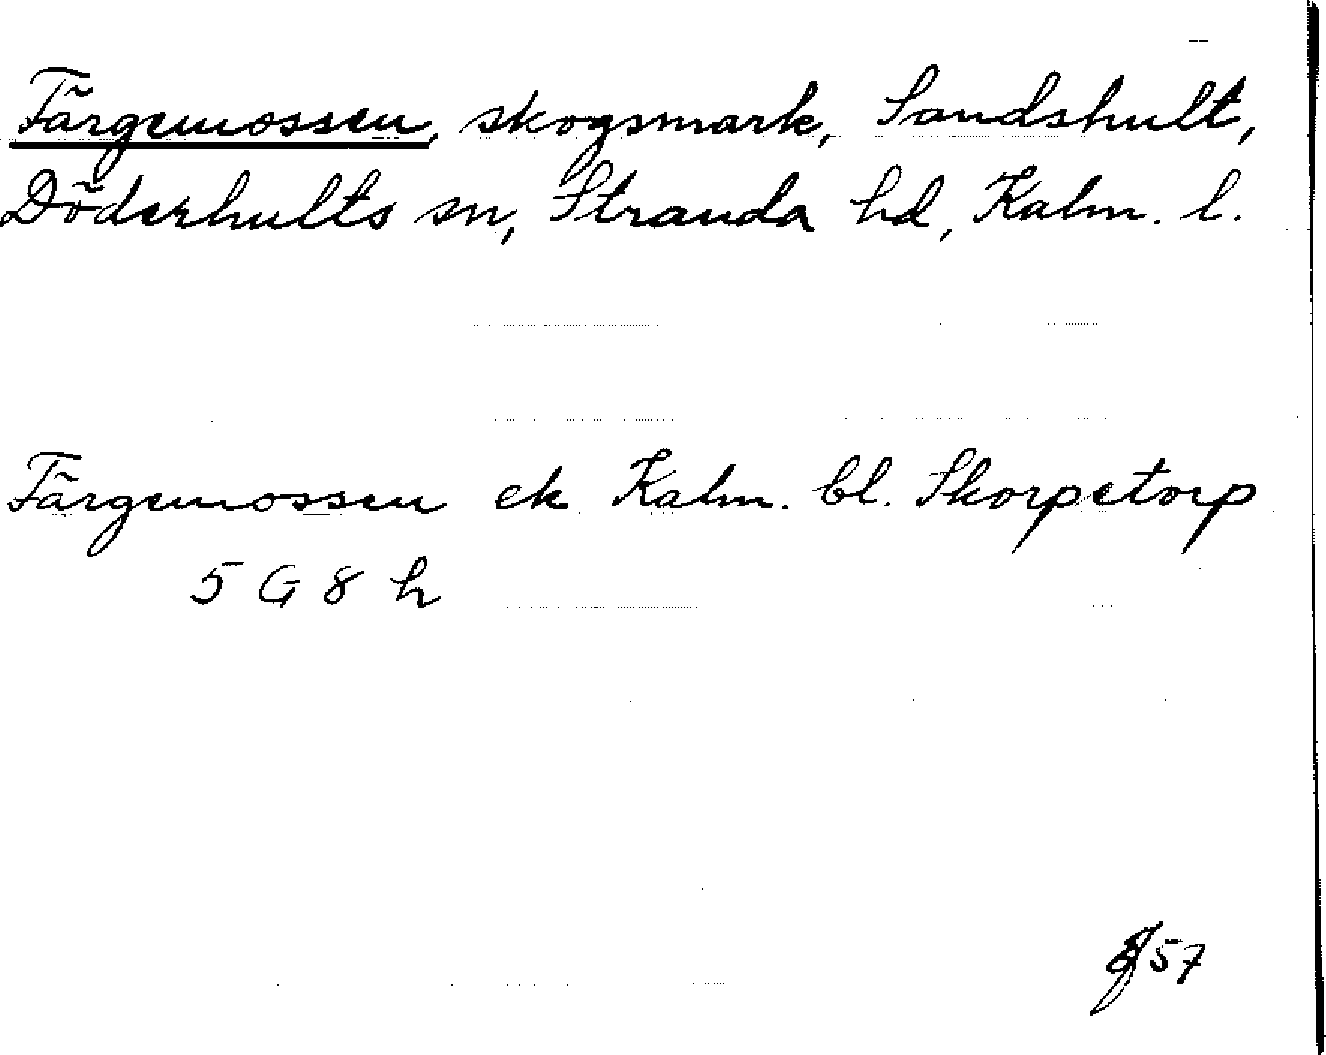 Färgemossen, skogsmark, Sandshult,
Döderhults sn, Stranda hd, Kalm. l.
Färgemossen ek Kalm. bl. Skorpetorp
5 G 8 h
57